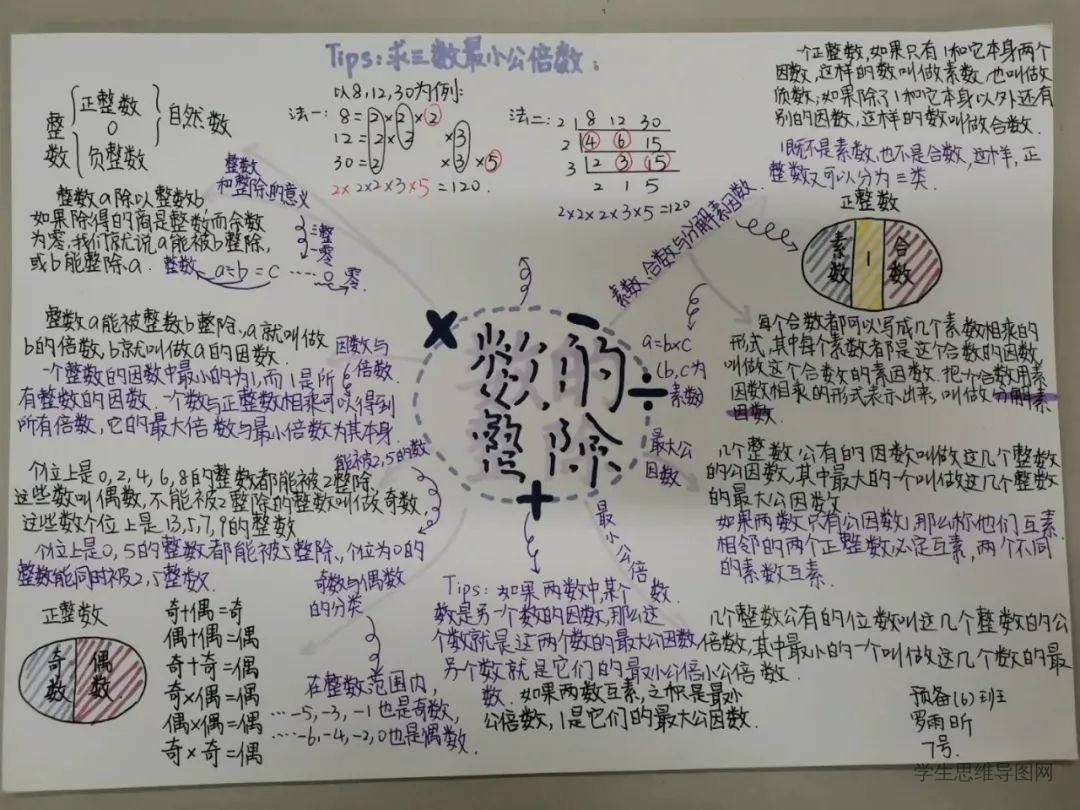 Tips:求三数最小公倍数:
以8,12,30为例:
法一: 8=2×2×2
12=2×2 ×3
30=2 ×3×5
2×2×2×3×5=120.
法二: 2 8 12 30
2 4 6 15
3 2 3 15
2 1 5
2×2×2×3×5=120
整数
正整数
0
负整数
自然数
整数
和整除的意义
整数a除以整数b
如果除得的商是整数而余数
为零,我们就说a能被b整除,
或b能整除a.
三整
一零
整数 a÷b=c ……0 零
整数a能被整数b整除,a就叫做
b的倍数,b就叫做a的因数.
因数与
倍数
一个整数的因数中最小的为1,而1是所
有整数的因数.一个数与正整数相乘可以得到
所有倍数,它的最大倍数与最小倍数为其本身.
能被2,5的数
个位上是0,2,4,6,8的整数都能被2整除,
这些数叫偶数,不能被2整除的整数叫做奇数,
这些数个位上是13,5,7,9的整数
个位上是0,5的整数都能被5整除,个位为0的
整数能同时被2,5整数.
正整数
奇数
偶数
奇+偶=奇
偶+偶=偶
奇+奇=偶
奇×偶=偶
偶×偶=偶
奇×奇=偶
奇数与偶数
的分类
在整数范围内,
…-5,-3,-1也是奇数,
…-6,-4,-2,0也是偶数.
数的
整除
× − ÷ +
一个正整数,如果只有1和它本身两个
因数,这样的数叫做素数,也叫做
质数;如果除了1和它本身以外还有
别的因数,这样的数叫做合数.
1既不是素数,也不是合数,这样,正
整数又可以分为三类.
素数、合数与分解素因数
正整数
素数
1
合数
a=b×c
(b,c为
素数)
每个合数都可以写成几个素数相乘的
形式,其中每个素数都是这个合数的因数,
叫做这个合数的素因数.把一个合数用素
因数相乘的形式表示出来,叫做分解素
因数.
最大公
因数
几个整数公有的因数叫做这几个整数
的公因数,其中最大的一个叫做这几个整数
的最大公因数
如果两数只有公因数1,那么称他们互素.
相邻的两个正整数必定互素,两个不同
的素数互素.
最小公倍数
几个整数公有的位数叫这几个整数的公
倍数,其中最小的一个叫做这几个数的最
小公倍数
Tips:如果两数中,某个
数是另一个数的因数,那么这
个数就是这两个数的最大公因数,
另个数就是它们的最小公倍
数. 如果两数互素,之积是最小
公倍数,1是它们的最大公因数.
预备(6)班
罗雨昕
7号.
学生思维导图网